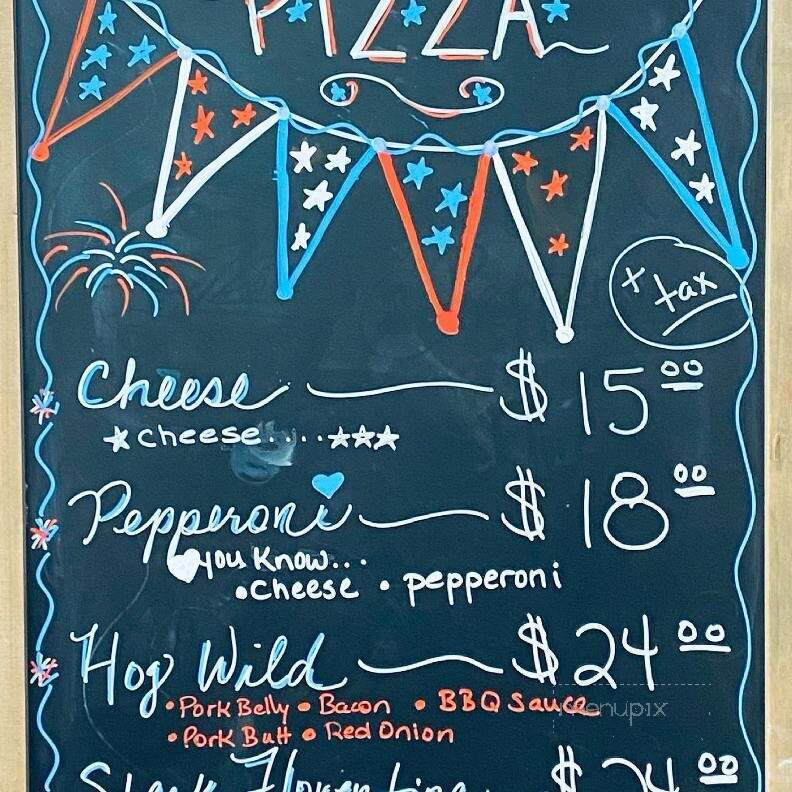 PIZZA
+ tax
Cheese $ 15 00
cheese....
Pepperoni $ 18 00
you know...
• cheese • pepperoni
Hog Wild $ 24 00
• Pork Belly • Bacon • BBQ Sauce
menupix
• Pork Butt • Red Onion
Steak Florentine $ 24 00